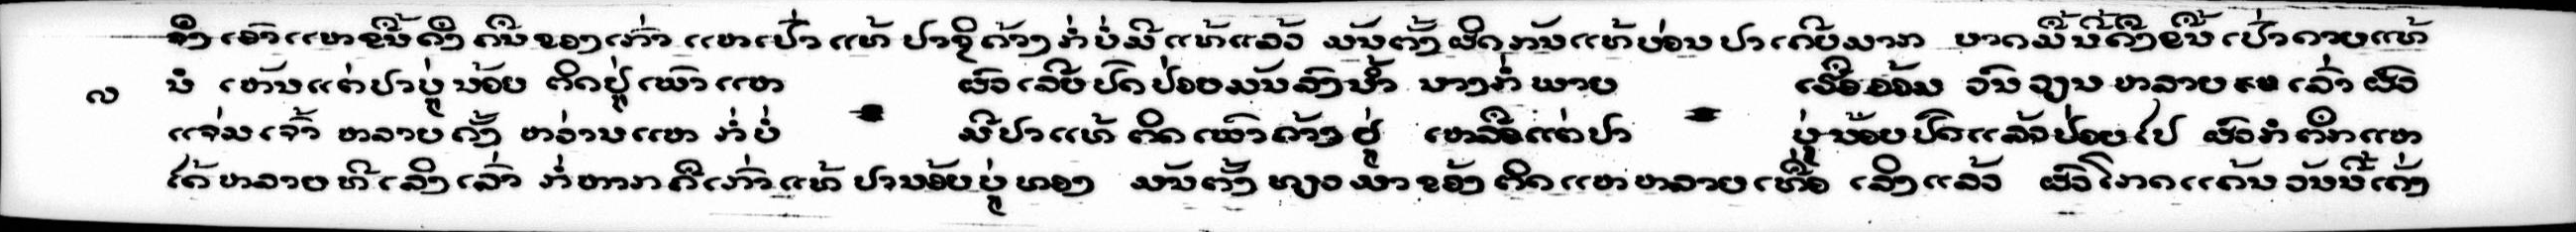 ຈຶ່ງ ເອົາ ແຫຂຶ້ນຄືງ ຄືນຂອງເກົ່າ ແຫເປົ່າ ແທ້ ປາຊິຄ້າງ ກໍ່ບໍ່ມີ ແທ້ແລ້ວ ມັນຕັ້ງ ຜິດກັນແທ້ບ່ອນປາເຄີຍມາກ ຍາດມື້ນີ້ຄືງຂຶ້ນ ເປົ່າດາຍແທ້
ນໍ ເຫັນແຕ່ປາບູ່ນ້ອຍ ຕິດຢູ່ເພົາແຫ ຜົວ ເລີຍປົດປ່ອຍມັນລົງນ້ຳ ນາງກໍ່ພາຍ ເຮືອອ້ອມ ວົນວຽນຫລາຍ ເລົ່າ ຜົວ
ແຈ່ມເຈົ້າ ຫລາຍຄັ້ງ ຫວ່ານແຫ ກໍ່ບໍ່ ມີປາແທ້ ຕິດເພົາຄ້າງຢູ່ ເຫລືອແຕ່ປາ ບູ່ນ້ອຍປົດແລ້ວປ່ອຍໄປ ຜົວກໍຕຶກແຫ
ໄດ້ຫລາຍທີເລິງເລົ່າ ກໍ່ຫາກຄືເກົ່າແທ້ ປານອ້ຍບູ່ທອງ ມັນຕັ້ງ ທຽວມາຂອ້ງຕິດແຫຫລາຍເທື່ອ ເລິງແລ້ວ ຜົວໂກດແຄ້ນວັນນີ້ເຄັ່ງ